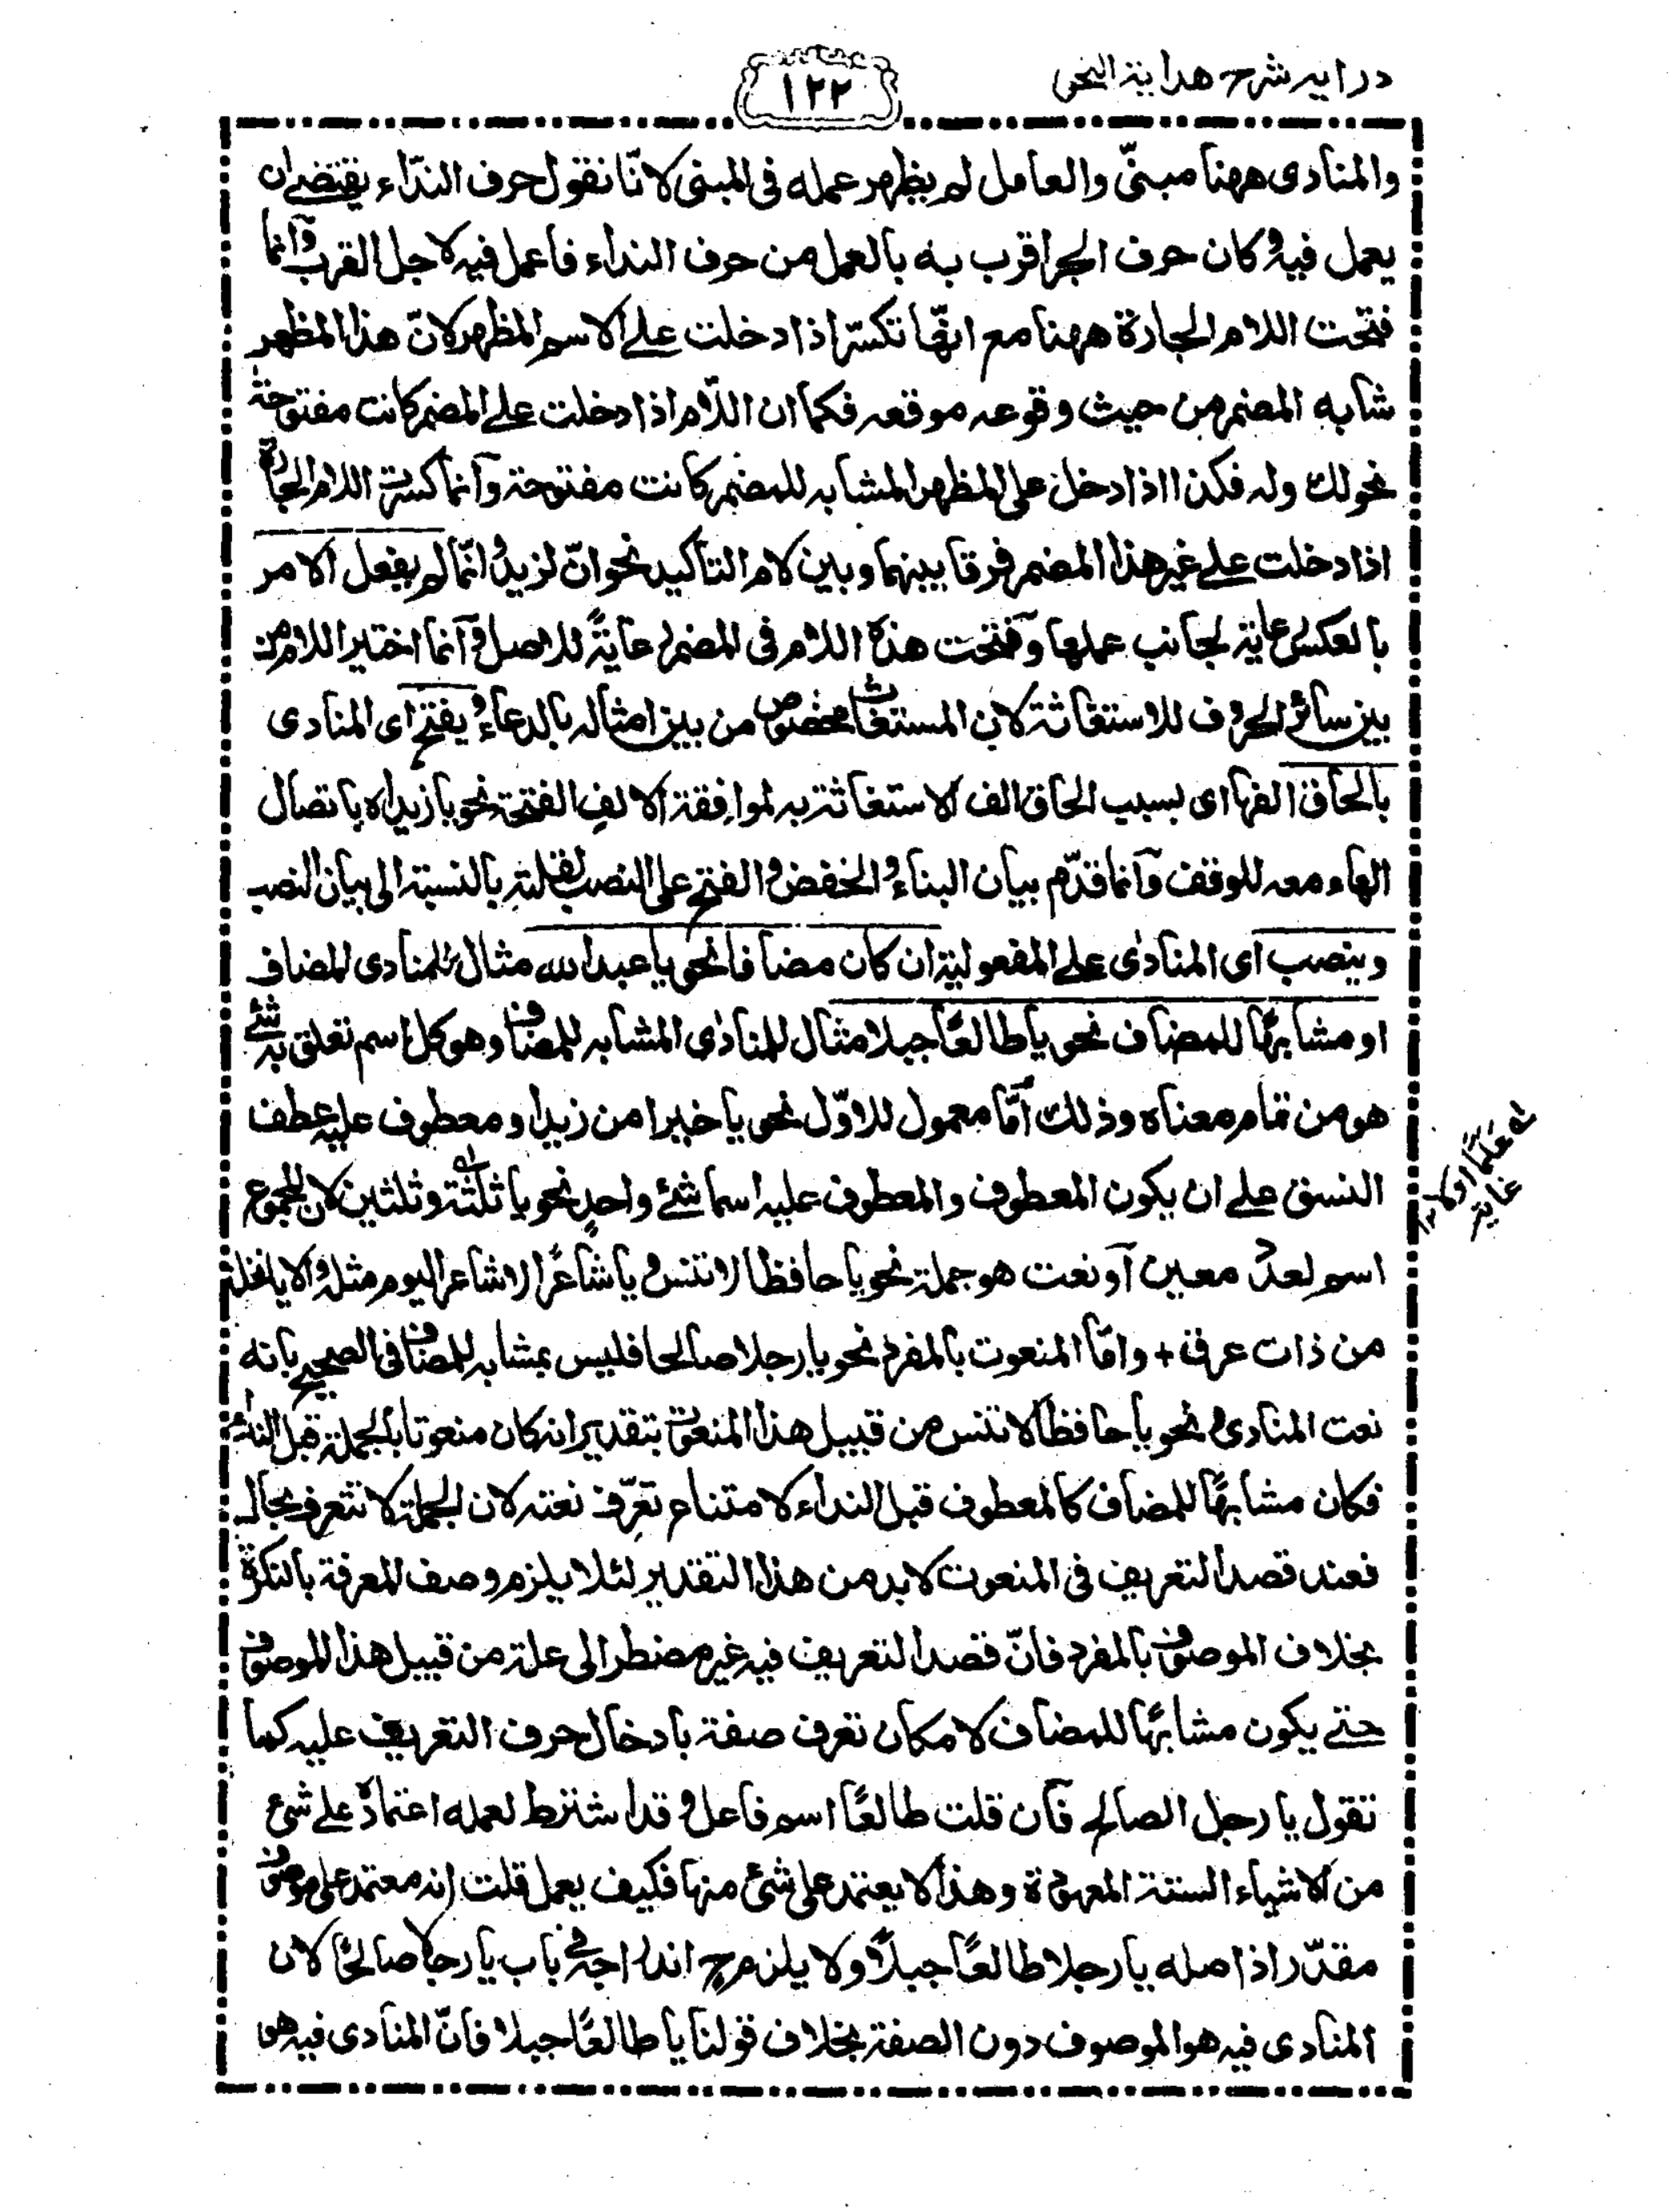 درایہ شرح هدایة النحو
١٢٢
والمنادی ههنا مبنیّ والعامل لم یظهر عمله فی المبنی لانّا نقول حرف النداء یقتضے ان
یعمل فیه وکان حرف الجر اقرب به بالعمل من حرف النداء فاعمل فیه لاجل القرب وانما
فتحت اللام الجارة ههنا مع انّها تکسر اذا دخلت علے الاسم المظهر لانّ هذا المظهر
شابه المضمر من حیث وقوعه موقعه فکما ان اللّام اذا دخلت علے المضمر کانت مفتوحة
نحو لك وله فکذا اذا دخل علی المظهر المشابه للمضمر کانت مفتوحة وانما کسرت اللام الجارة
اذا دخلت علے غیر هذا المضمر فرقا بینهما وبین لام التاکید نحو انّ لزید وانّما لم یفعل الامر
بالعکس رعایة لجانب عملها وفتحت هذه اللام فی المضمر رعایةً للاصل وانما اختیر اللام من
بین سائر الحروف للاستغاثة لان المستغاث مخصوص من بین امثاله بالدعاء ویفتح ای المنادی
بالحاق الفها ای بسبب الحاق الف الاستغاثة به لموافقة الالف الفتحة نحو یا زیداه باتصال
الهاء معه للوقف وانما قدّم بیان البناء والخفض والفتح علی النصب لقلیته بالنسبة الی بیان النصب
وینصب ای المنادٰی علے المفعولیة ان کان مضافا نحو یا عبد الله مثال للمنادی المضاف
او مشابهًا للمضاف نحو یا طالعًا جبلا مثال للمنادٰی المشابه للمضاف وهو کل اسم تعلق به شئے
هو من تمام معناه وذلك اِمّا معمول للاوّل نحو یا خیرا من زید او معطوف علیه عطف
النسق علے ان یکون المعطوف والمعطوف علیه اسما شئے واحدٍ نحو یا ثلثة وثلثین لان المجموع
اسم لعدد معین او نعت هو جملة نحو یا حافظا لا تنس و یا شاعرًا لا شاعر الیوم مثله والا یا نخلة
من ذات عرق + وامّا المنعوت بالمفرد نحو یا رجلا صالحا فلیس بمشابه للمضاف فی الصحیح بانه
نعت المنادی ونحو یا حافظًا لا تنس من قبیل هذا المنعوت بتقدیر انه کان منعوتا بالجملة قبل النداء
فکان مشابهًا للمضاف کالمعطوف قبل النداء لامتناع تعرّف نعته لان الجملة لا تتعرف بحال
فعند قصد التعریف فی المنعوت لابد من هذا التقدیر لئلا یلزم وصف المعرفة بالنکرة
بخلاف الموصوف بالمفرد فانّ قصد التعریف فیه غیر مضطر الی علة من قبیل هذا الموصوف
حتے یکون مشابهًا للمضاف لامکان تعرف صفة بادخال حرف التعریف علیه کما
تقول یا رجل الصالح فان قلت طالعًا اسم فاعل وقد اشترط لعمله اعتماده علے شئ
من الاشیاء الستة المعهودة وهذا لا یعتمد علی شئ منها فکیف یعمل قلت انه معتمد علی موصوف
مقدّر اذ اصله یا رجلا طالعًا جبلًا ولا یلزم ح اندراجه فی باب یا رجلا صالحًا لان
المنادی فیه هو الموصوف دون الصفة بخلاف قولنا یا طالعًا جبلا فانّ المنادی فیه هو